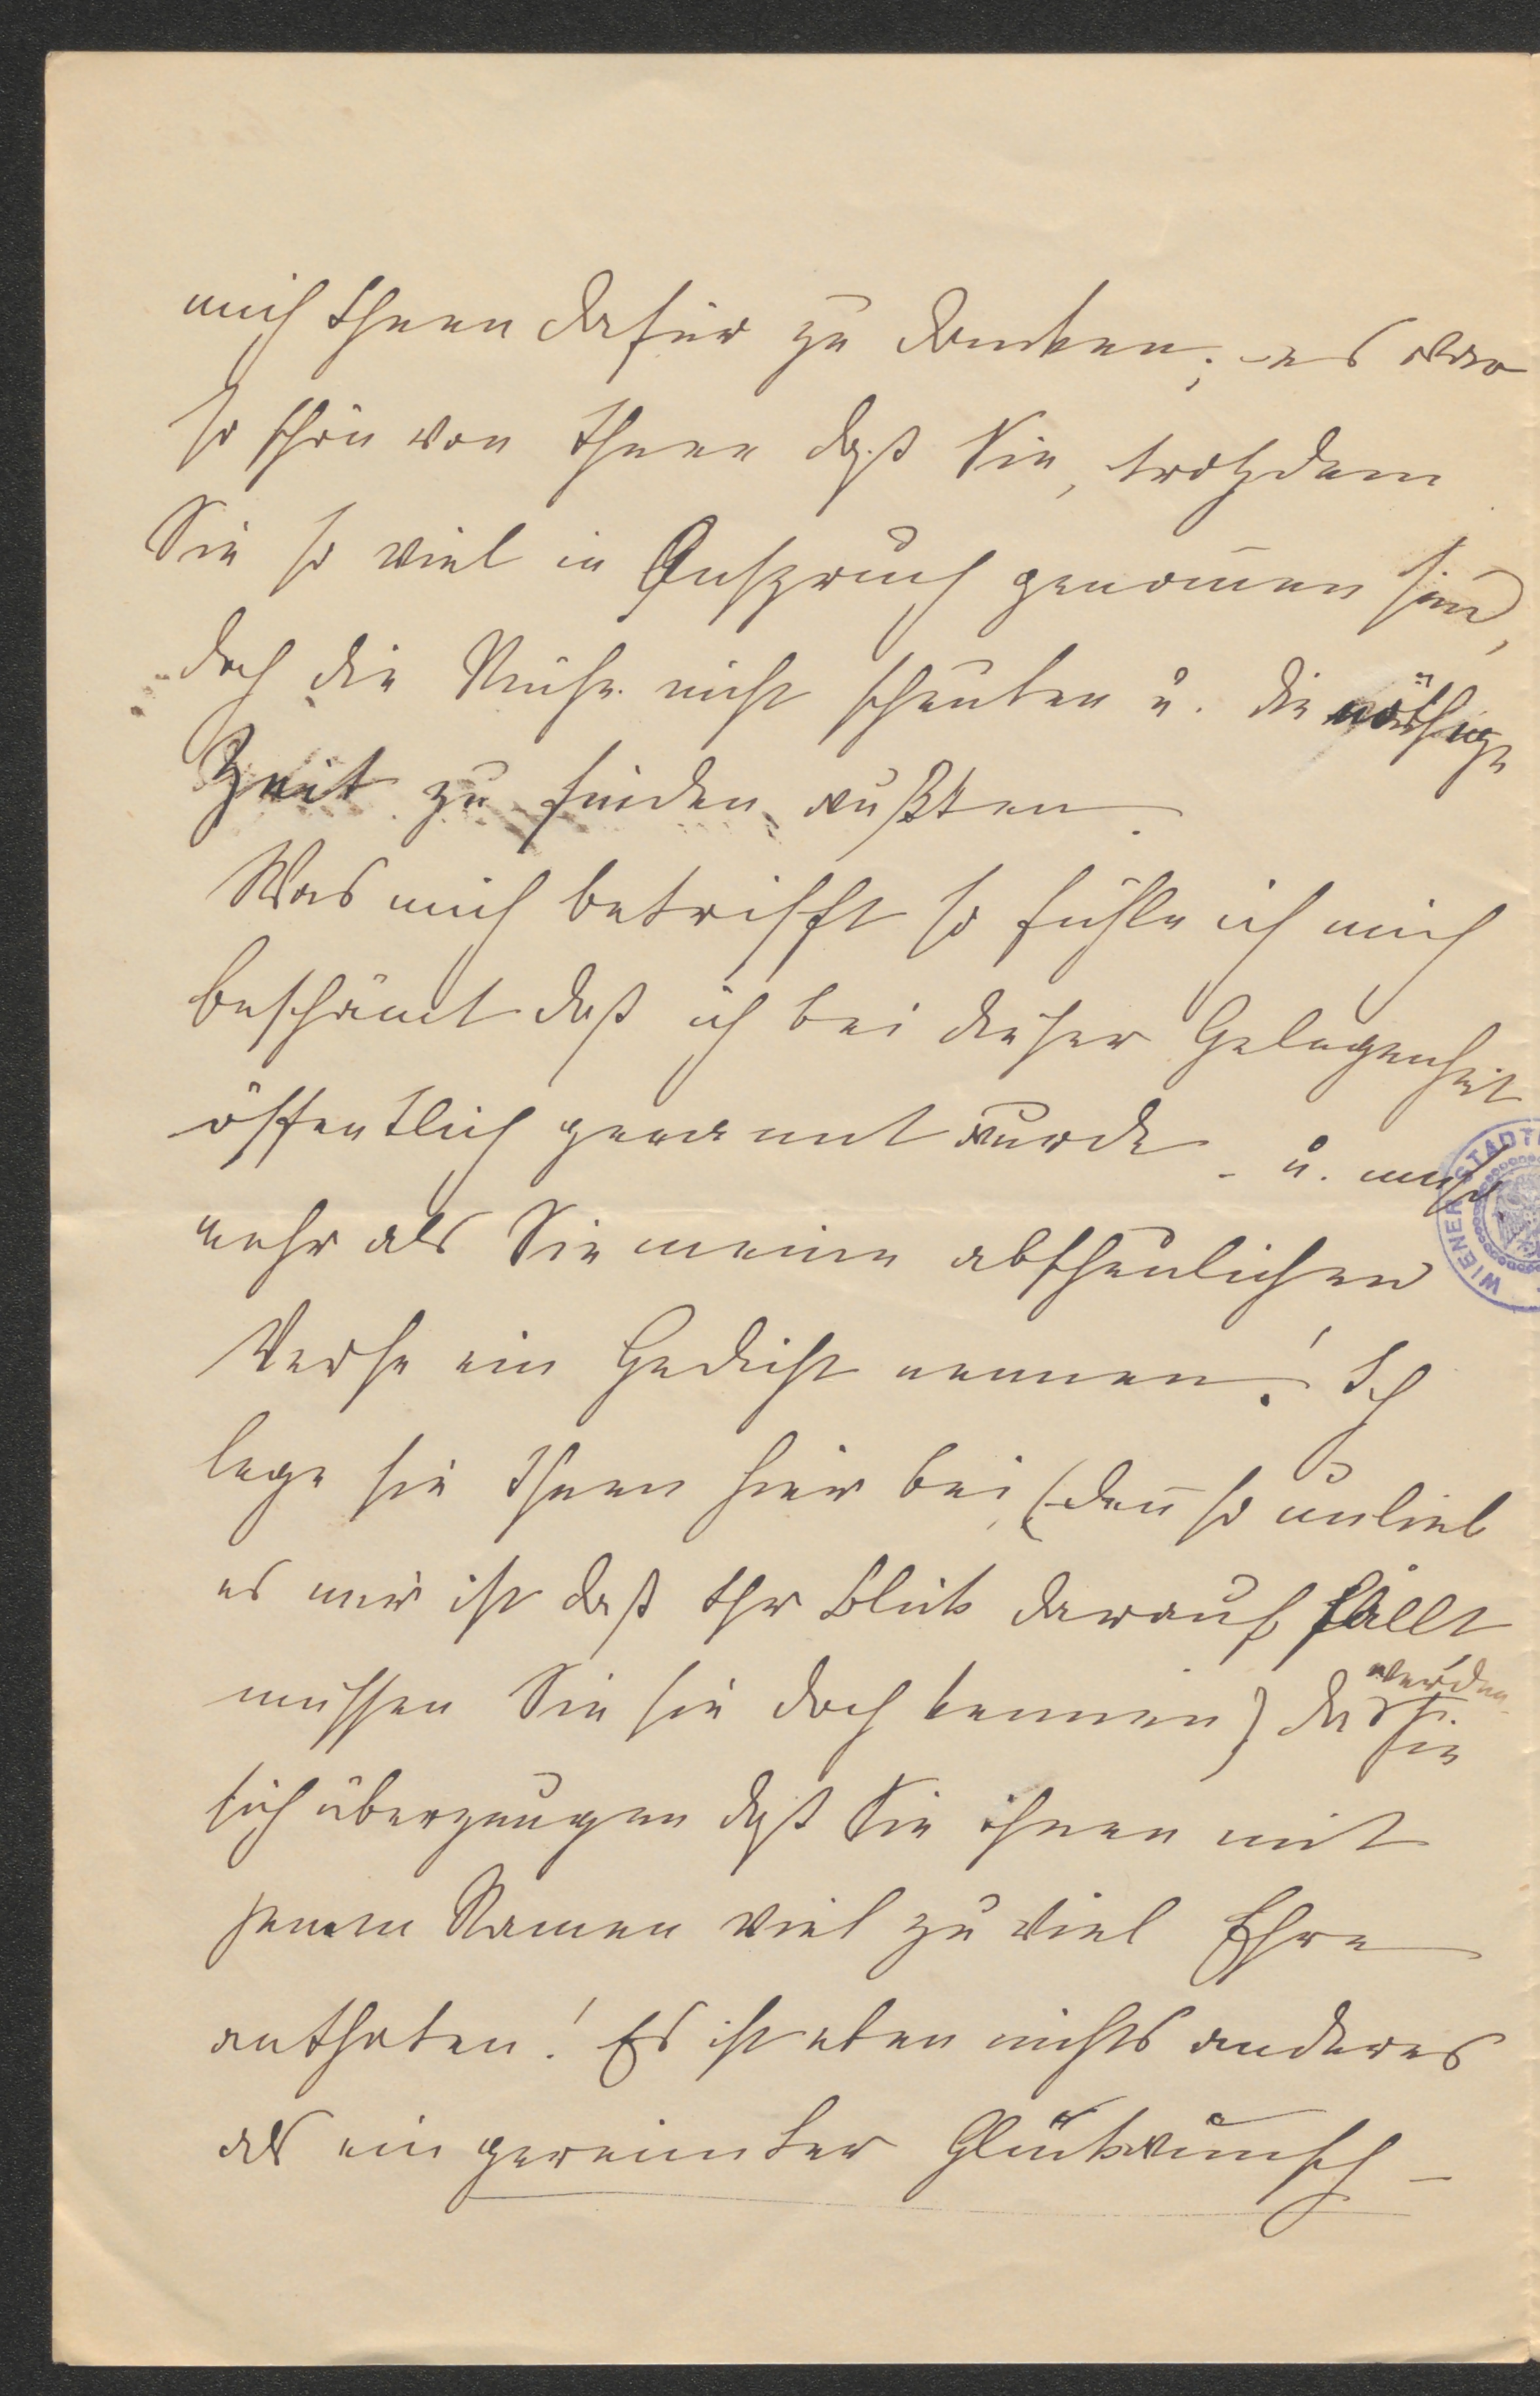 mich Ihnen dafür zu danken; es war
so schön von Ihnen daß Sie, trotzdem
Sie so viel in Anspruch genom̄en sind,
doch die Mühe nicht scheuten u. die nöthige
Zeit zu finden wußten.
Was mich betrifft so fühle ich mich
beschämt daß ich bei dieser Gelegenheit
öffentlich genannt wurde - u. umso
mehr als Sie meine abscheulichen
Verse ein Gedicht nennen! Ich
lege sie Ihnen hier bei, (den̄ so unlieb
es mir ist daß Ihr Blick darauf fällt
müssen Sie sie doch kennen) da werden Sie
sich überzeugen daß Sie ihnen mit
jenem Namen viel zu viel Ehre
anthaten! Es ist eben nichts anderes
als ein gereimter Glückwunsch -
WIENER STADT